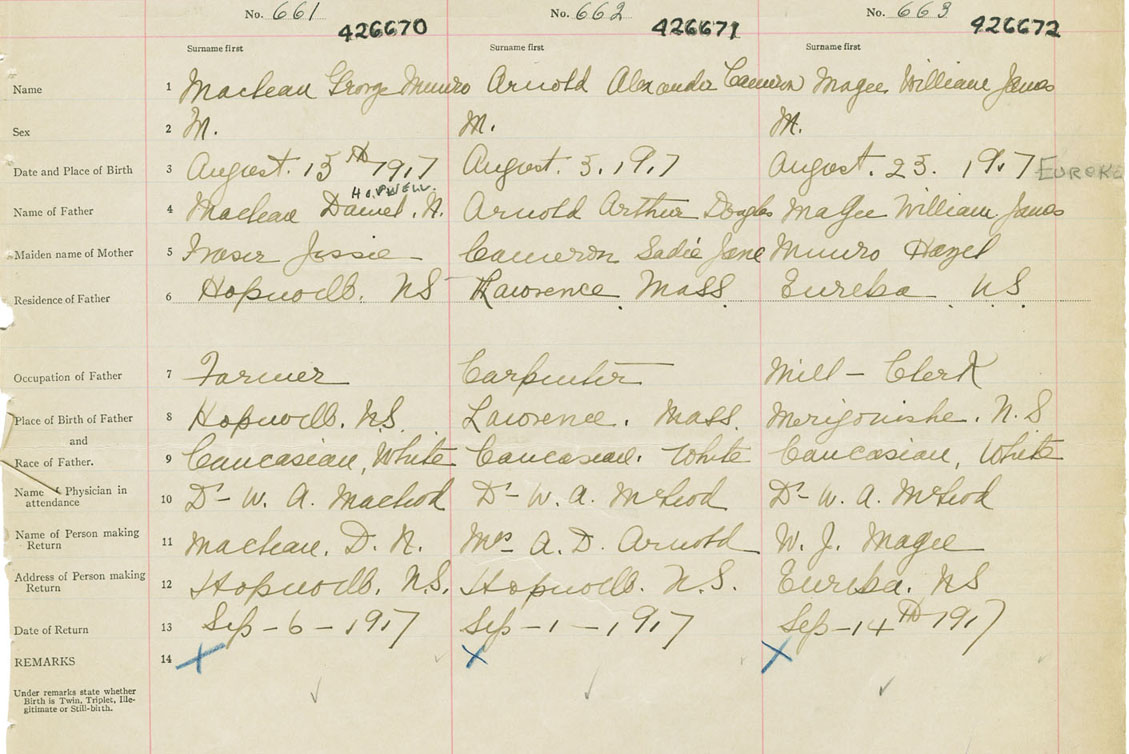 No. 661 No. 662 No. 663
426670 426671 426672
Surname first Surname first Surname first
Name 1 Maclean George Munro Arnold Alexander Cameron Magee William James
Sex 2 M. M. M.
Date and Place of Birth 3 August. 13th 1917 August. 3. 1917 August. 23. 1917 EUREKA
HOPWELL.
Name of Father 4 Maclean Daniel. N. Arnold Arthur Douglas Magee William James
Maiden name of Mother 5 Fraser Jessie Cameron Sadie Jane Munro Hazel
Residence of Father 6 Hopwell. NS Lawrence Mass. Eureka N.S.
Occupation of Father 7 Farmer Carpenter Mill - Clerk
Place of Birth of Father 8 Hopwell. N.S. Lawrence. Mass. Merigonishe. N.S
and
Race of Father. 9 Caucasian, White Caucasian. White Caucasian, White
Name of Physician in
attendance 10 Dr- W. A. Macleod Dr- W. A. McLeod Dr- W. A. McLeod
Name of Person making
Return 11 Maclean. D. N. Mrs A. D. Arnold W. J. Magee
Address of Person making
Return 12 Hopwell. N.S. Hopwell. N.S. Eureka. NS
Date of Return 13 Sep - 6 - 1917 Sep - 1 - 1917 Sep - 14th 1917
REMARKS 14
Under remarks state whether
Birth is Twin, Triplet, Ille-
gitimate or Still-birth.